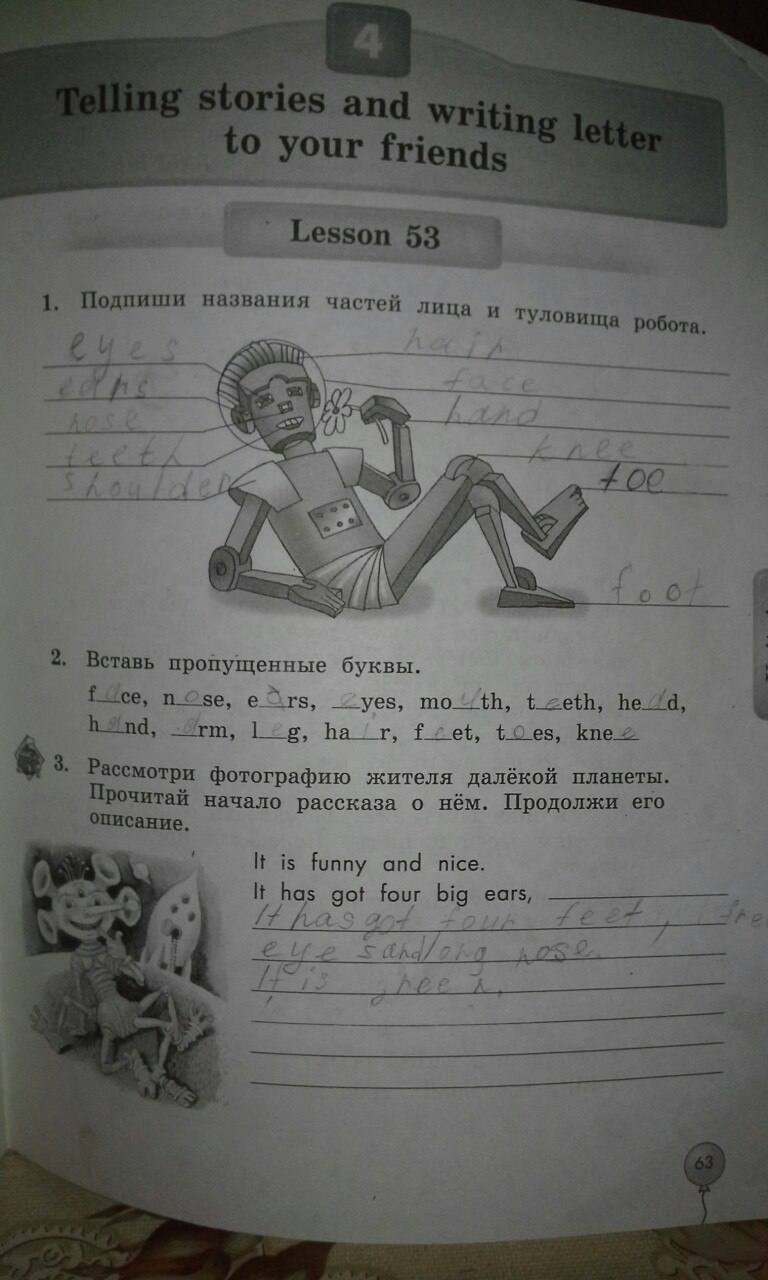 4
Telling stories and writing letter
to your friends
Lesson 53
1. Подпиши названия частей лица и туловища робота.
eyes
hair
ears
face
nose
hand
teeth
knee
shoulder
toe
foot
2. Вставь пропущенные буквы.
face, nose, ears, eyes, mouth, teeth, head,
hand, arm, leg, hair, feet, toes, knee
3. Рассмотри фотографию жителя далёкой планеты.
Прочитай начало рассказа о нём. Продолжи его
описание.
It is funny and nice.
It has got four big ears,
It has got four feet, fre
eyes and long nose.
It is green.
63